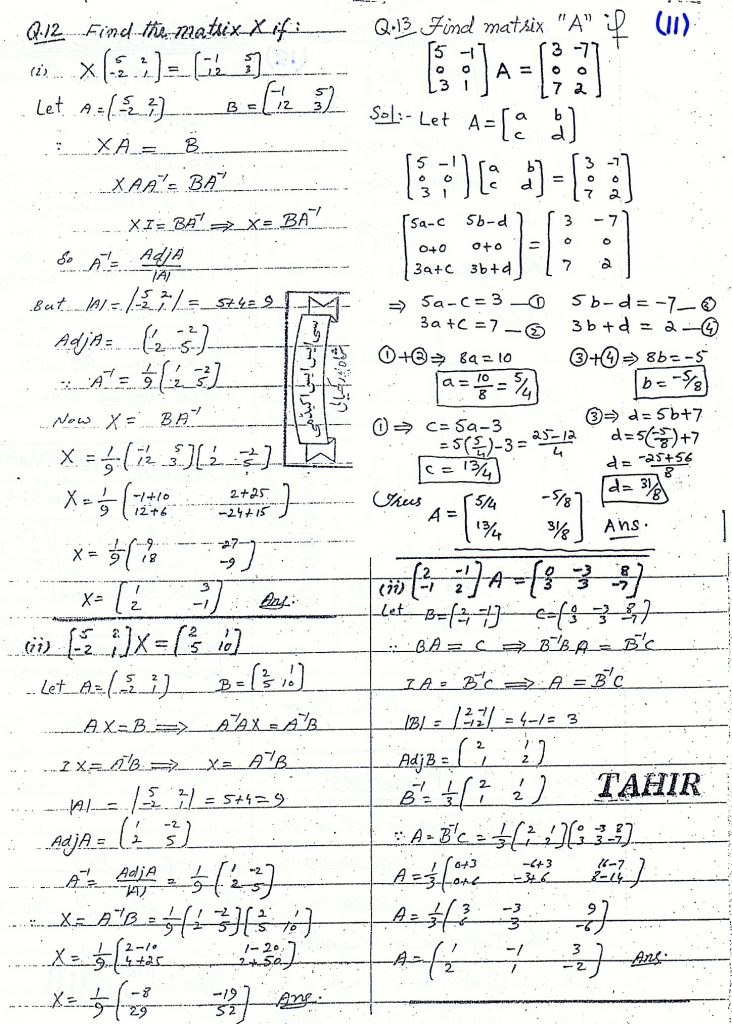 Q.12 Find the matrix X if:
(i) X [5 2; -2 1] = [-1 5; 12 3]
Let A = [5 2; -2 1] B = [-1 5; 12 3]
∵ XA = B
XAA⁻¹ = BA⁻¹
XI = BA⁻¹ ⇒ X = BA⁻¹
So A⁻¹ = AdjA / |A|
But |A| = |5 2; -2 1| = 5+4 = 9
AdjA = [1 -2; 2 5]
∵ A⁻¹ = 1/9 [1 -2; 2 5]
Now X = BA⁻¹
X = 1/9 [-1 5; 12 3] [1 -2; 2 5]
X = 1/9 [-1+10 2+25; 12+6 -24+15]
X = 1/9 [9 27; 18 -9]
X = [1 3; 2 -1] Ans.
(ii) [5 2; -2 1] X = [2 1; 5 10]
Let A = [5 2; -2 1] B = [2 1; 5 10]
AX = B ⇒ A⁻¹AX = A⁻¹B
IX = A⁻¹B ⇒ X = A⁻¹B
|A| = |5 2; -2 1| = 5+4 = 9
AdjA = [1 -2; 2 5]
A⁻¹ = AdjA / |A| = 1/9 [1 -2; 2 5]
∵ X = A⁻¹B = 1/9 [1 -2; 2 5] [2 1; 5 10]
X = 1/9 [2-10 1-20; 4+25 2+50]
X = 1/9 [-8 -19; 29 52] Ans.
Q.13 Find matrix "A" if (11)
[5 -1; 0 0; 3 1] A = [3 -7; 0 0; 7 2]
Sol:- Let A = [a b; c d]
[5 -1; 0 0; 3 1] [a b; c d] = [3 -7; 0 0; 7 2]
[5a-c 5b-d; 0+0 0+0; 3a+c 3b+d] = [3 -7; 0 0; 7 2]
⇒ 5a-c = 3 —① 5b-d = -7 —③
3a+c = 7 —② 3b+d = 2 —④
①+② ⇒ 8a = 10 ③+④ ⇒ 8b = -5
a = 10/8 = 5/4 b = -5/8
① ⇒ c = 5a-3 ③ ⇒ d = 5b+7
= 5(5/4)-3 = 25-12/4 d = 5(-5/8)+7
c = 13/4 d = -25+56/8
d = 31/8
Thus A = [5/4 -5/8; 13/4 31/8] Ans.
(ii) [2 -1; -1 2] A = [0 -3 8; 3 3 -7]
Let B = [2 -1; -1 2] C = [0 -3 8; 3 3 -7]
∵ BA = C ⇒ B⁻¹BA = B⁻¹C
IA = B⁻¹C ⇒ A = B⁻¹C
|B| = |2 -1; -1 2| = 4-1 = 3
AdjB = [2 1; 1 2]
B⁻¹ = 1/3 [2 1; 1 2]
TAHIR
∵ A = B⁻¹C = 1/3 [2 1; 1 2] [0 -3 8; 3 3 -7]
A = 1/3 [0+3 -6+3 16-7; 0+6 -3+6 8-14]
A = 1/3 [3 -3 9; 6 3 -6]
A = [1 -1 3; 2 1 -2] Ans.